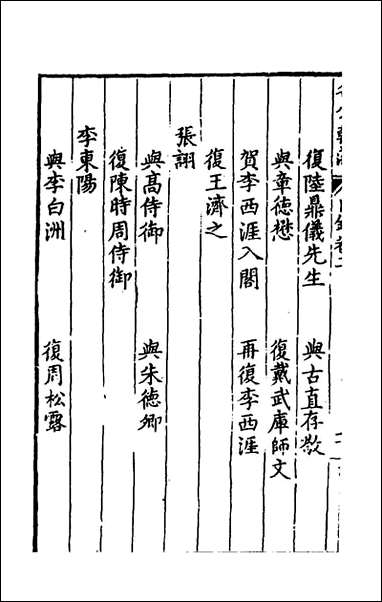 復陸鼎儀先生　與古直存敬
與章徳懋　復戴武庫師文
賀李西涯入閣　再復李西涯
復王濟之
張詡
與髙侍御　與朱徳卿
復陳時周侍御
李東陽
與李白洲　復周松露